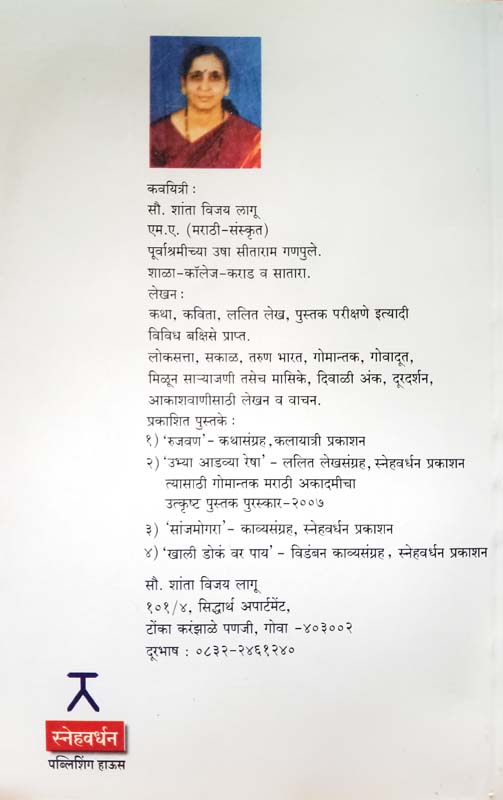 कवयित्री :
सौ. शांता विजय लागू
एम.ए. (मराठी-संस्कृत)
पूर्वाश्रमीच्या उषा सीताराम गणपुले.
शाळा-कॉलेज-कराड व सातारा.
लेखन :
कथा, कविता, ललित लेख, पुस्तक परीक्षणे इत्यादी
विविध बक्षिसे प्राप्त.
लोकसत्ता, सकाळ, तरुण भारत, गोमान्तक, गोवादूत,
मिळून साऱ्याजणी तसेच मासिके, दिवाळी अंक, दूरदर्शन,
आकाशवाणीसाठी लेखन व वाचन.
प्रकाशित पुस्तके :
१) ‘रुजवण’- कथासंग्रह, कलायात्री प्रकाशन
२) ‘उभ्या आडव्या रेषा’ - ललित लेखसंग्रह, स्नेहवर्धन प्रकाशन
त्यासाठी गोमान्तक मराठी अकादमीचा
उत्कृष्ट पुस्तक पुरस्कार-२००७
३) ‘सांजमोगरा’ - काव्यसंग्रह, स्नेहवर्धन प्रकाशन
४) ‘खाली डोकं वर पाय’ - विडंबन काव्यसंग्रह, स्नेहवर्धन प्रकाशन
सौ. शांता विजय लागू
१०१/४, सिद्धार्थ अपार्टमेंट,
टोंका करंझाळे पणजी, गोवा -४०३००२
दूरभाष : ०८३२-२४६१२४०
स्नेहवर्धन
पब्लिशिंग हाऊस